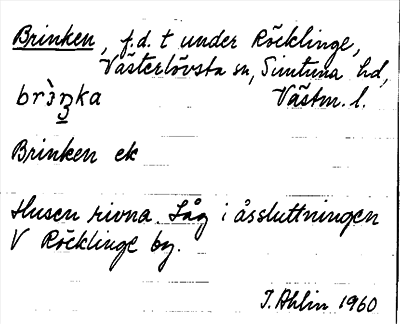 Brinken, f.d. t under Röcklinge,
Västerlövsta sn, Simtuna hd,
Västm. l.
brìŋka
Brinken ek
Husen rivna. Låg i åssluttningen
V Röcklinge by.
I. Ahlin 1960